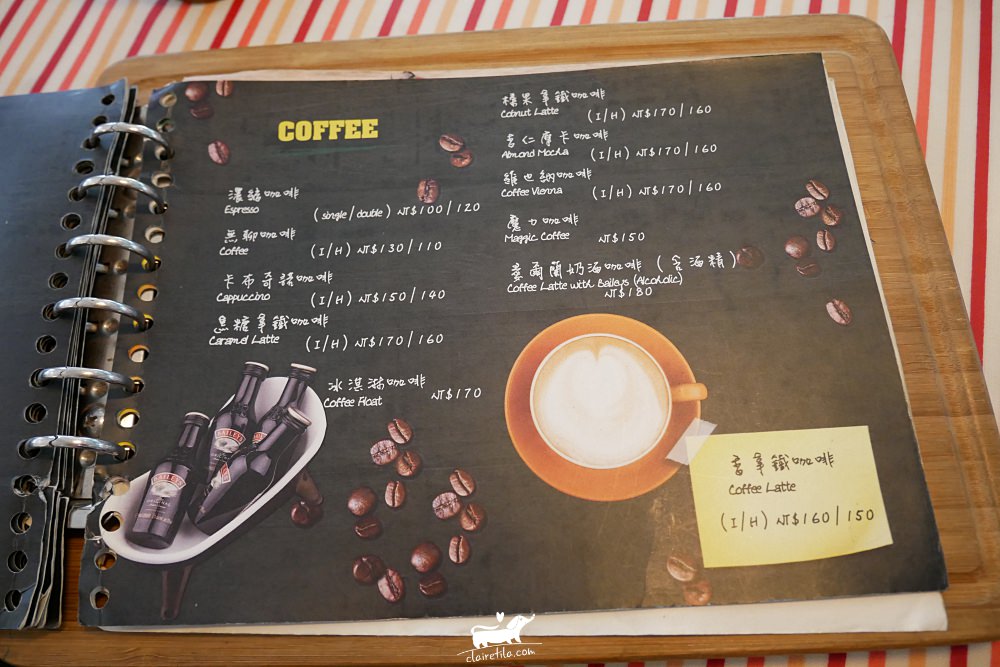 COFFEE
濃縮咖啡
Espresso (single/double) NT$100/120
無聊咖啡
Coffee (I/H) NT$130/110
卡布奇諾咖啡
Cappuccino (I/H) NT$150/140
黑糖拿鐵咖啡
Caramel Latte (I/H) NT$170/160
冰淇淋咖啡
Coffee Float NT$170
榛果拿鐵咖啡
Cobnut Latte (I/H) NT$170/160
杏仁摩卡咖啡
Almond Mocha (I/H) NT$170/160
維也納咖啡
Coffee Vienna (I/H) NT$170/160
魔力咖啡
Maggic Coffee NT$150
愛爾蘭奶酒咖啡 (含酒精)
Coffee Latte with Baileys (Alcoholic)
NT$180
拿鐵咖啡
Coffee Latte
(I/H) NT$160/150
clairetila.com